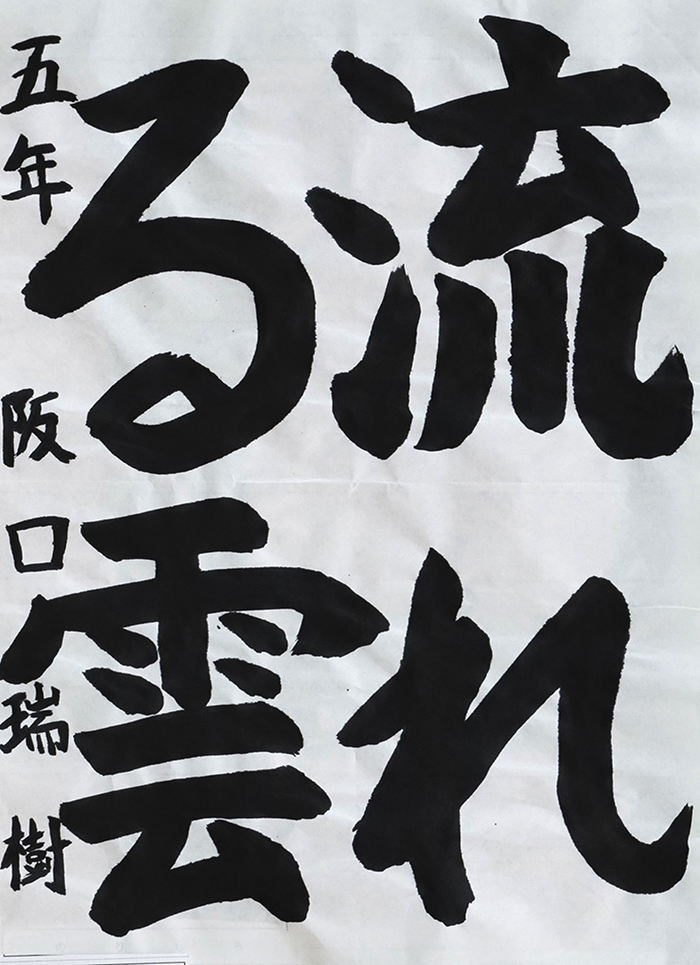 流れ
る雲
五年 阪口瑞樹